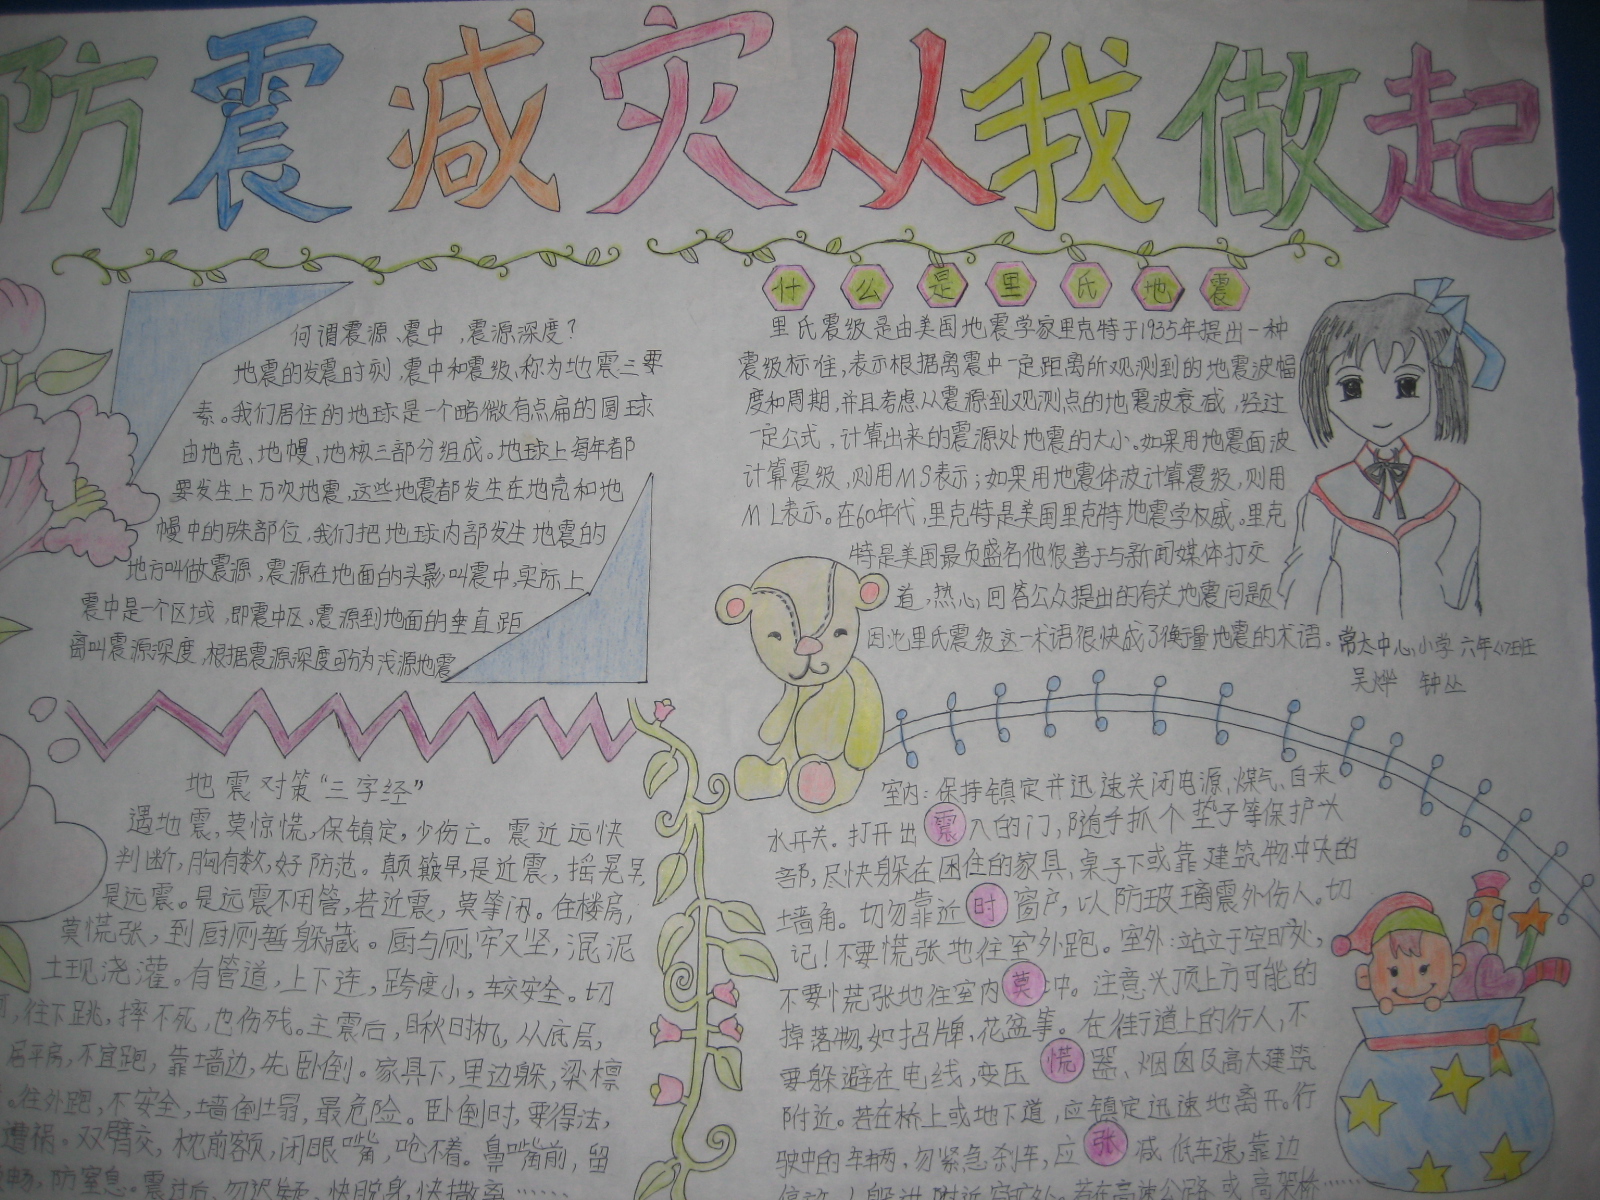 防震减灾从我做起
何谓震源、震中,震源深度?
地震的发震时刻、震中和震级、称为地震三要
素。我们居住的地球是一个略微有点扁的圆球
由地壳、地幔、地核三部分组成。地球上每年都
要发生上万次地震,这些地震都发生在地壳和地
幔中的殊部位,我们把地球内部发生地震的
地方叫做震源,震源在地面的头影叫震中,实际上
震中是一个区域,即震中区。震源到地面的垂直距
离叫震源深度,根据震源深度可分为浅源地震
什么是里氏地震
里氏震级是由美国地震学家里克特于1935年提出一种
震级标准,表示根据离震中一定距离所观测到的地震波幅
度和周期,并且考虑从震源到观测点的地震波衰减,经过
一定公式,计算出来的震源处地震的大小.如果用地震面波
计算震级,则用MS表示;如果用地震体波计算震级,则用
ML表示。在60年代,里克特是美国里克特地震学权威。里克
特是美国最负盛名他很善于与新闻媒体打交
道,热心,回答公众提出的有关地震问题
因此里氏震级这一术语很快成了衡量地震的术语。
常太中心小学六年
吴烨 钟丛
地震对策“三字经”
遇地震,莫惊慌,保镇定,少伤亡。震近远快
判断,胸有数,好防范。颠簸早,是近震,摇晃
是远震。是远震不用管,若近震,莫等闲。住楼房,
莫慌张,到厨厕暂躲藏。厨与厕,牢又坚,混泥
土现浇灌。有管道,上下连,跨度小,较安全。切
,往下跳,摔不死,也伤残。主震后,瞅时机,从底层,
居平房,不宜跑,靠墙边,先卧倒。家具下,里边躲,梁檩
。往外跑,不安全,墙倒塌,最危险。卧倒时,要得法,
遭祸。双臂交,枕前额,闭眼嘴,呛不着。鼻嘴前,留
畅,防窒息。震过后,勿迟疑,快脱身,快撤离……
室内:保持镇定并迅速关闭电源、煤气、自来
水开关。打开出震入的门,随手抓个垫子等保护头
部,尽快躲在困住的家具,桌子下或靠建筑物中央的
墙角。切勿靠近时窗户,以防玻璃震外伤人。切
记!不要慌张地住室外跑。室外:站立于空旷处,
不要慌张地住室内莫中。注意头顶上方可能的
掉落物,如招牌,花盆等。在街道上的行人,不
要躲避在电线,变压慌器、烟囱及高大建筑
附近。若在桥上或地下道,应镇定迅速地离开。行
驶中的车辆,勿紧急刹车,应张减低车速,靠边
停放,人躲进附近空旷处。若在高速公路或高架桥……